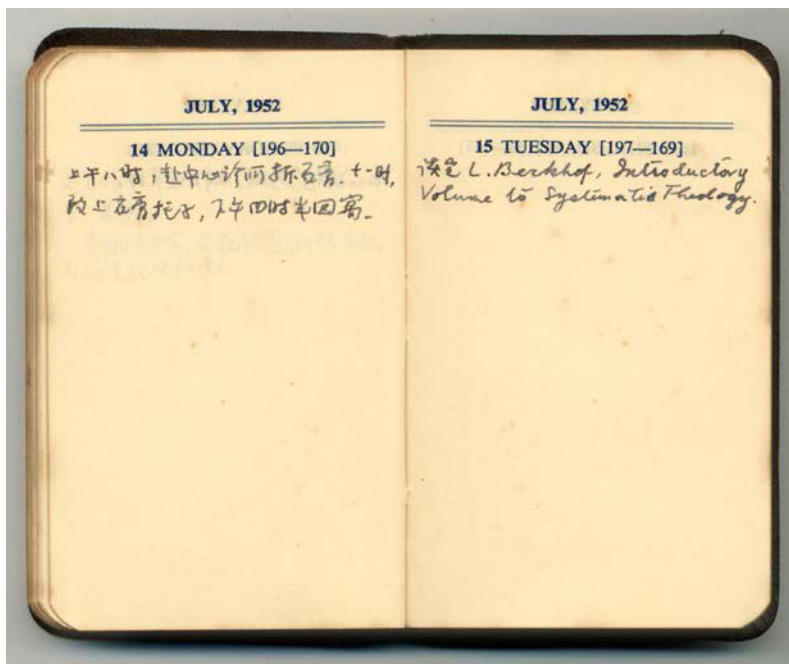 JULY, 1952
14 MONDAY [196—170]
上午八时，赴中心诊所拆石膏．十一时，
改上石膏托子，下午四时半回寓．
JULY, 1952
15 TUESDAY [197—169]
读完 L. Berkhof, Introductory
Volume to Systematic Theology.